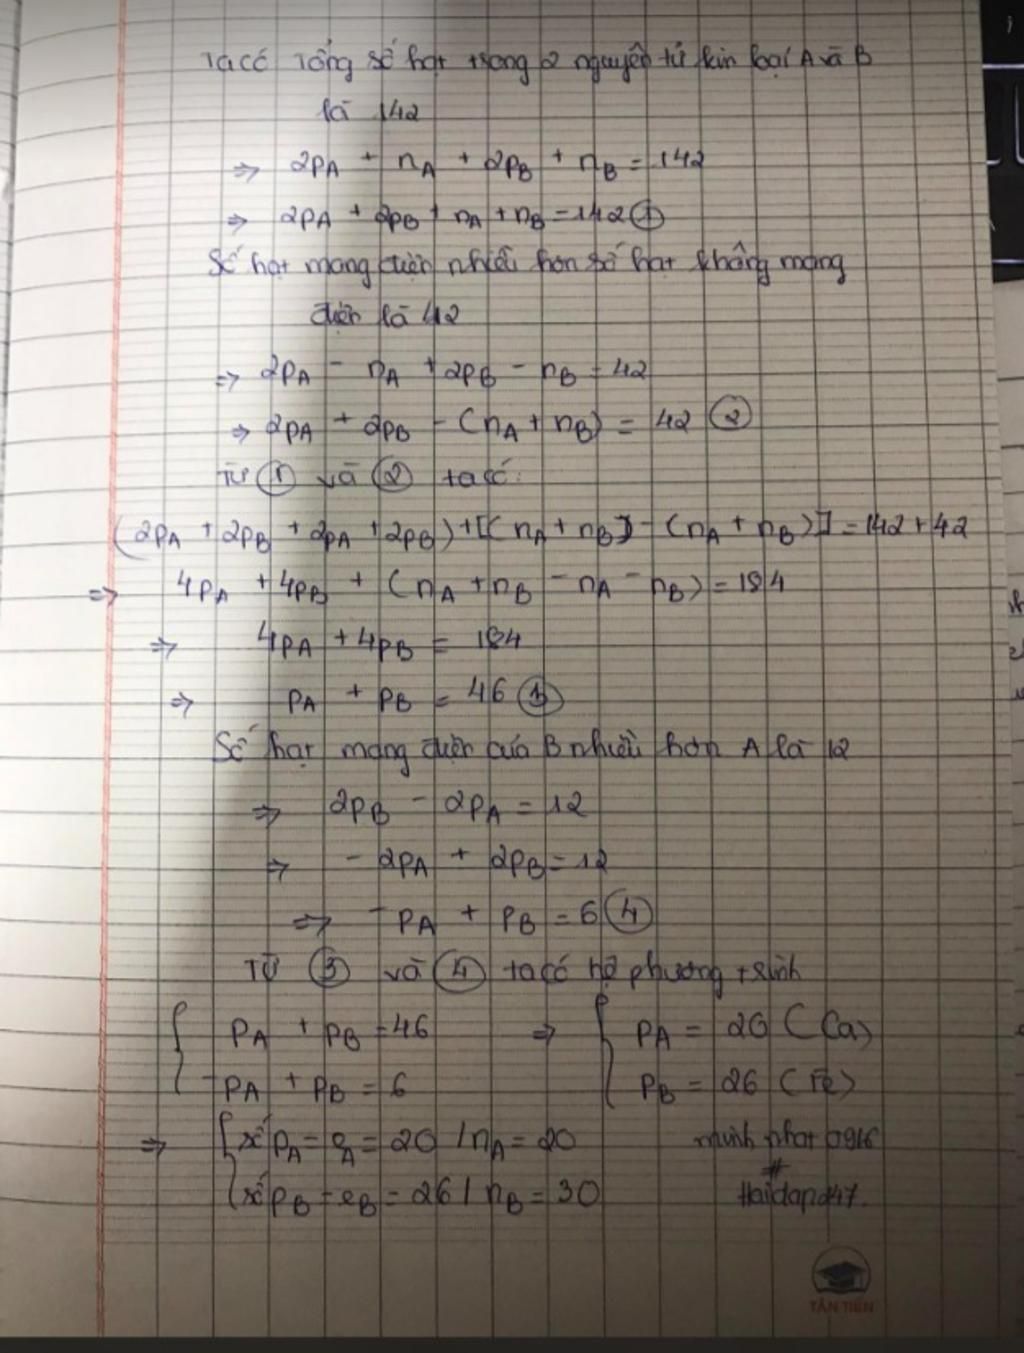 Ta có Tổng số hạt trong 2 nguyên tử kim loại A và B
là 142
=> 2pA + nA + 2pB + nB = 142
=> 2pA + 2pB + nA + nB = 142 ①
Số hạt mang điện nhiều hơn số hạt không mang
điện là 42
=> 2pA - nA + 2pB - nB = 42
=> 2pA + 2pB - (nA + nB) = 42 ②
Từ ① và ② ta có:
(2pA + 2pB + 2pA + 2pB) + [(nA + nB) - (nA + nB)] = 142 + 42
=> 4pA + 4pB + (nA + nB - nA - nB) = 184
=> 4pA + 4pB = 184
=> pA + pB = 46 ③
Số hạt mang điện của B nhiều hơn A là 12
=> 2pB - 2pA = 12
=> - 2pA + 2pB = 12
=> - pA + pB = 6 ④
Từ ③ và ④ ta có hệ phương trình
{ pA + pB = 46 => { pA = 20 (Ca)
-pA + pB = 6 pB = 26 (Fe)
=> { số pA = eA = 20 / nA = 20 minh nhat 0916
số pB = eB = 26 / nB = 30 # Hoidap247.
TÂN TIẾN